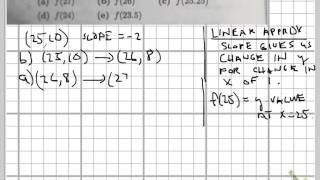 (a) f(27) (b) f(26) (c) f(25.25)
(d) f(24) (e) f(23.5)
(25,10) SLOPE = -2
b) (25,10) → (26,8)
a) (26,8) → (27
LINEAR APPROX
SLOPE GIVES US
CHANGE IN Y
FOR CHANGE IN
X OF 1.
f(25) = y VALUE
AT X=25.